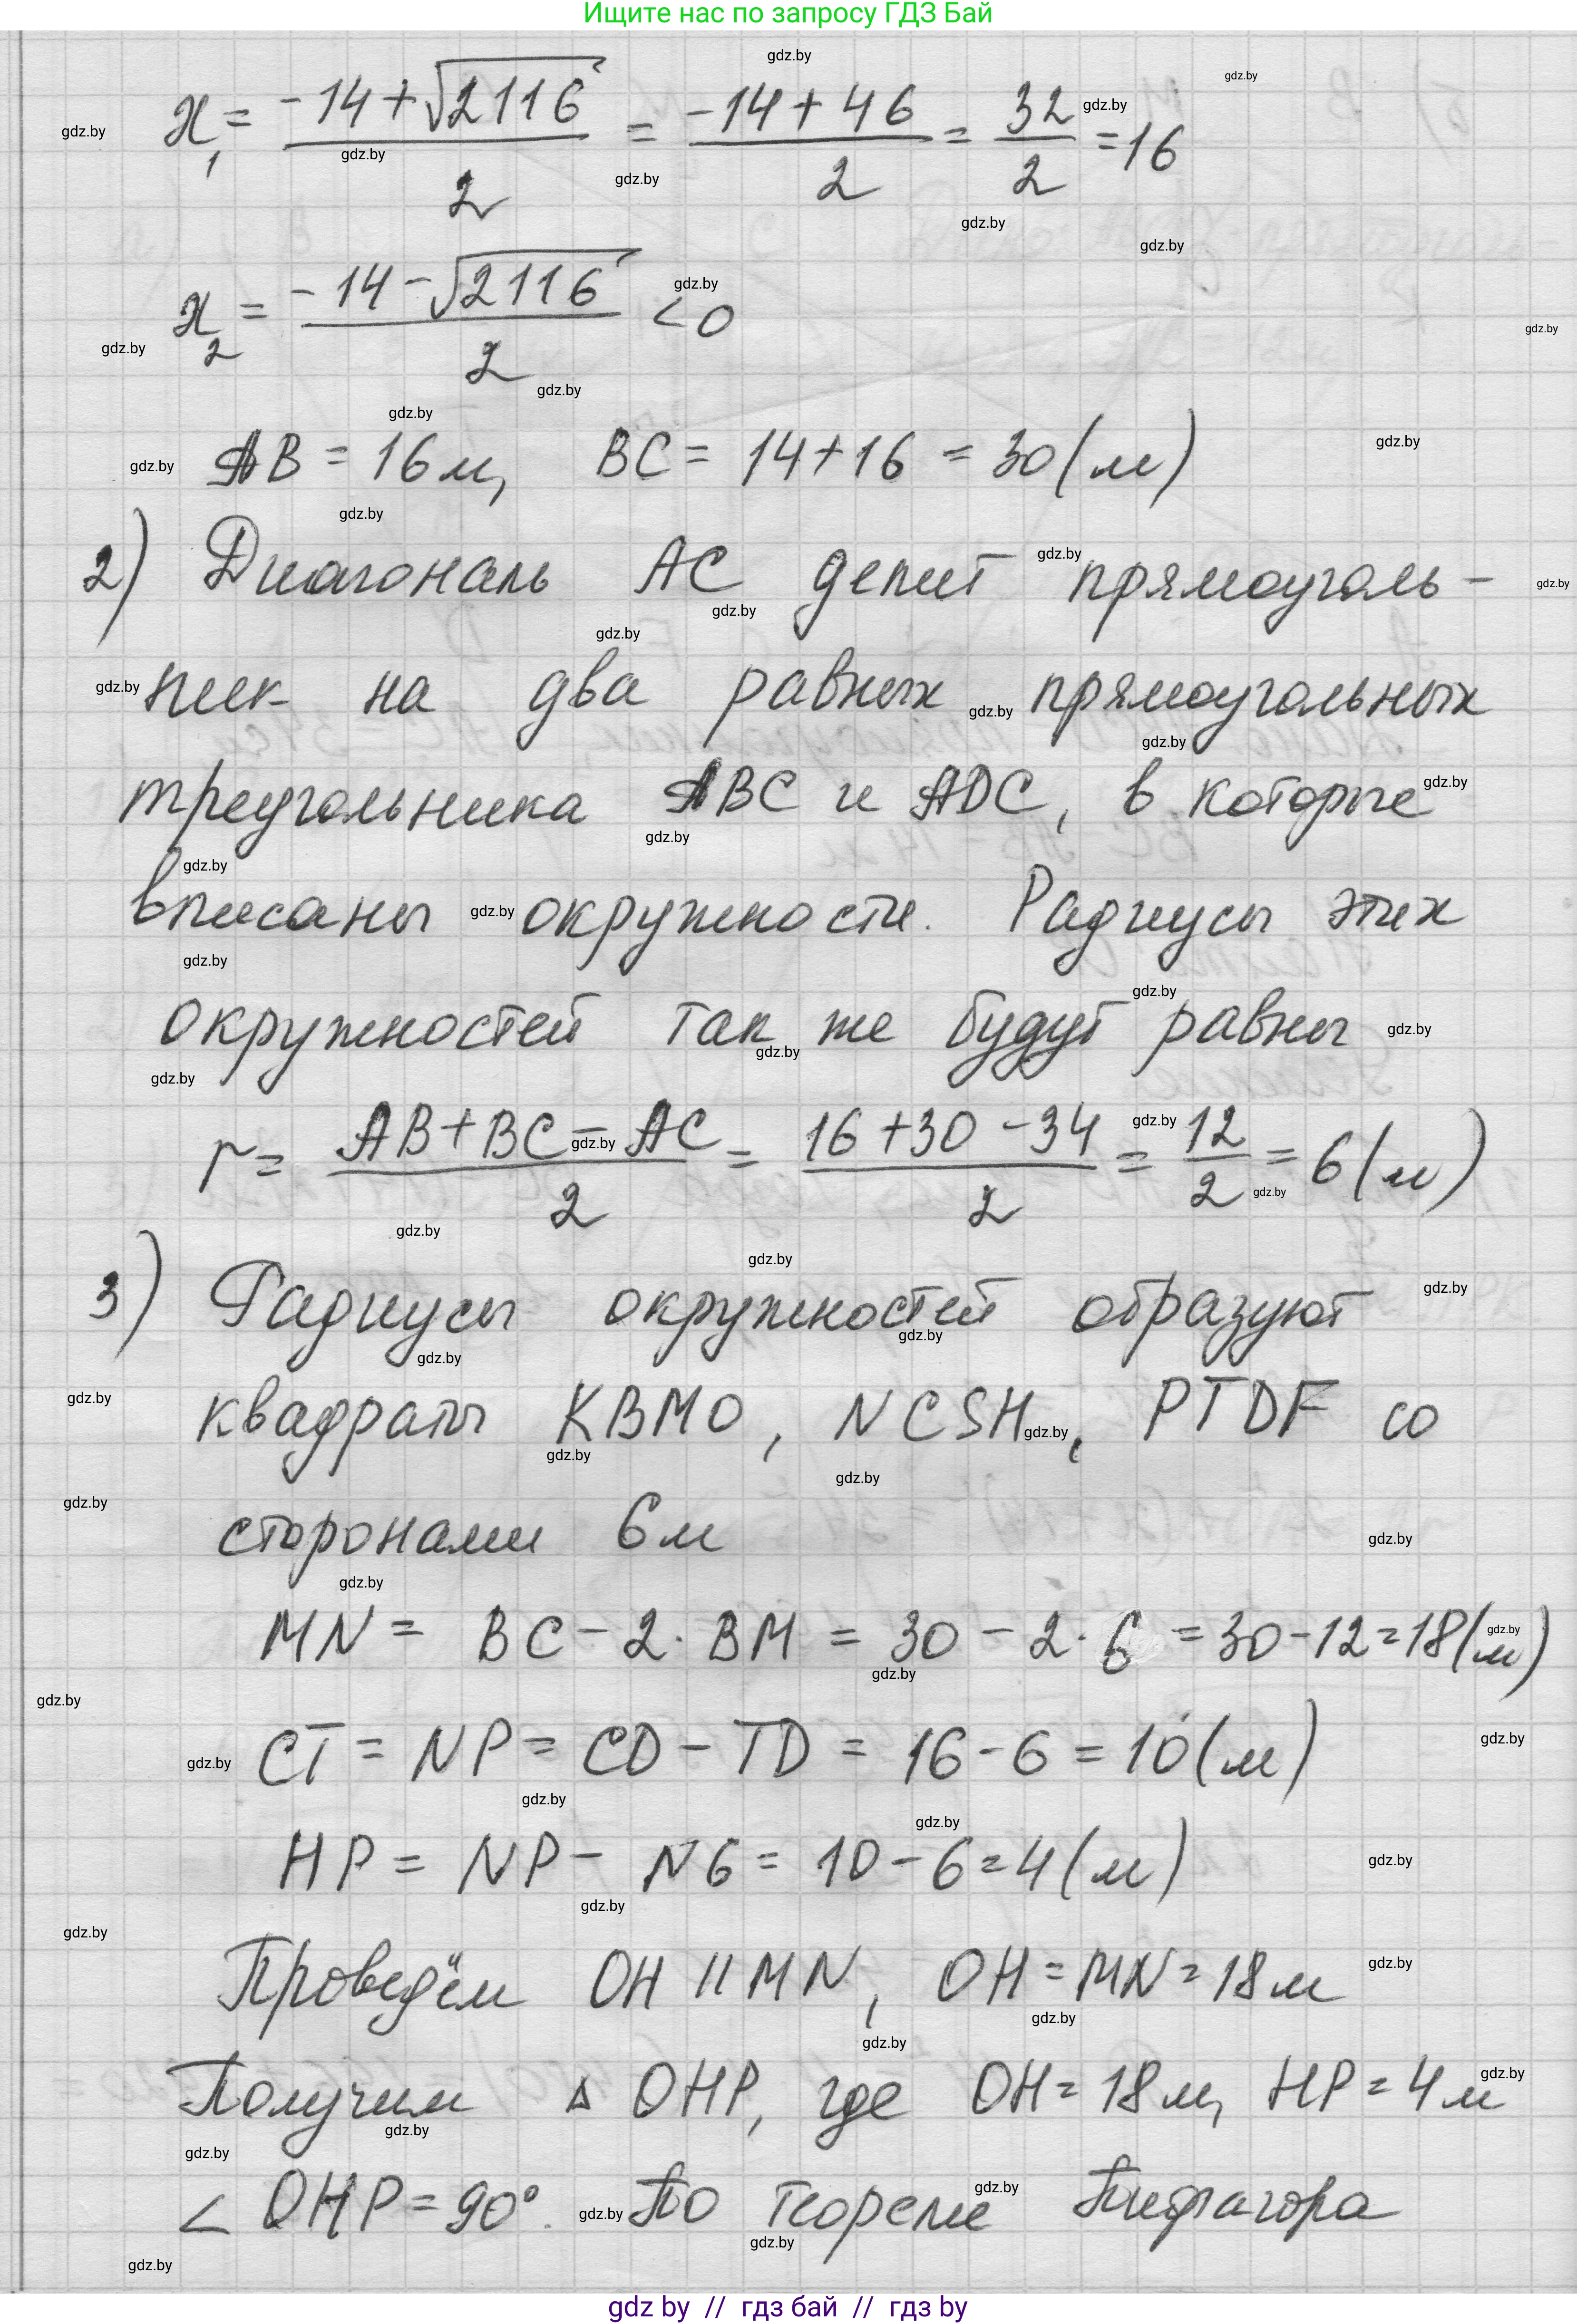 Ищите нас по запросу ГДЗ Бай
x₁ = (-14+√2116)/2 = (-14+46)/2 = 32/2 = 16
x₂ = (-14-√2116)/2 < 0
AB = 16м, BC = 14+16 = 30(м)
2) Диагональ AC делит прямоуголь-
ник на два равных прямоугольных
треугольника ABC и ADC, в которые
вписаны окружности. Радиусы этих
окружностей так же будут равны
r = (AB+BC-AC)/2 = (16+30-34)/2 = 12/2 = 6(м)
3) Радиусы окружностей образуют
квадраты KBMO, NCSH, PTDF со
сторонами 6м
MN = BC - 2·BM = 30 - 2·6 = 30-12=18(м)
CT = NP = CD - TD = 16-6 = 10(м)
HP = NP - N6 = 10-6=4(м)
Проведём OH || MN, OH = MN = 18м
Получим △ OHP, где OH = 18м, HP = 4м
∠ OHP = 90°. По теореме Пифагора
gdz by // гдз бай // гдз by